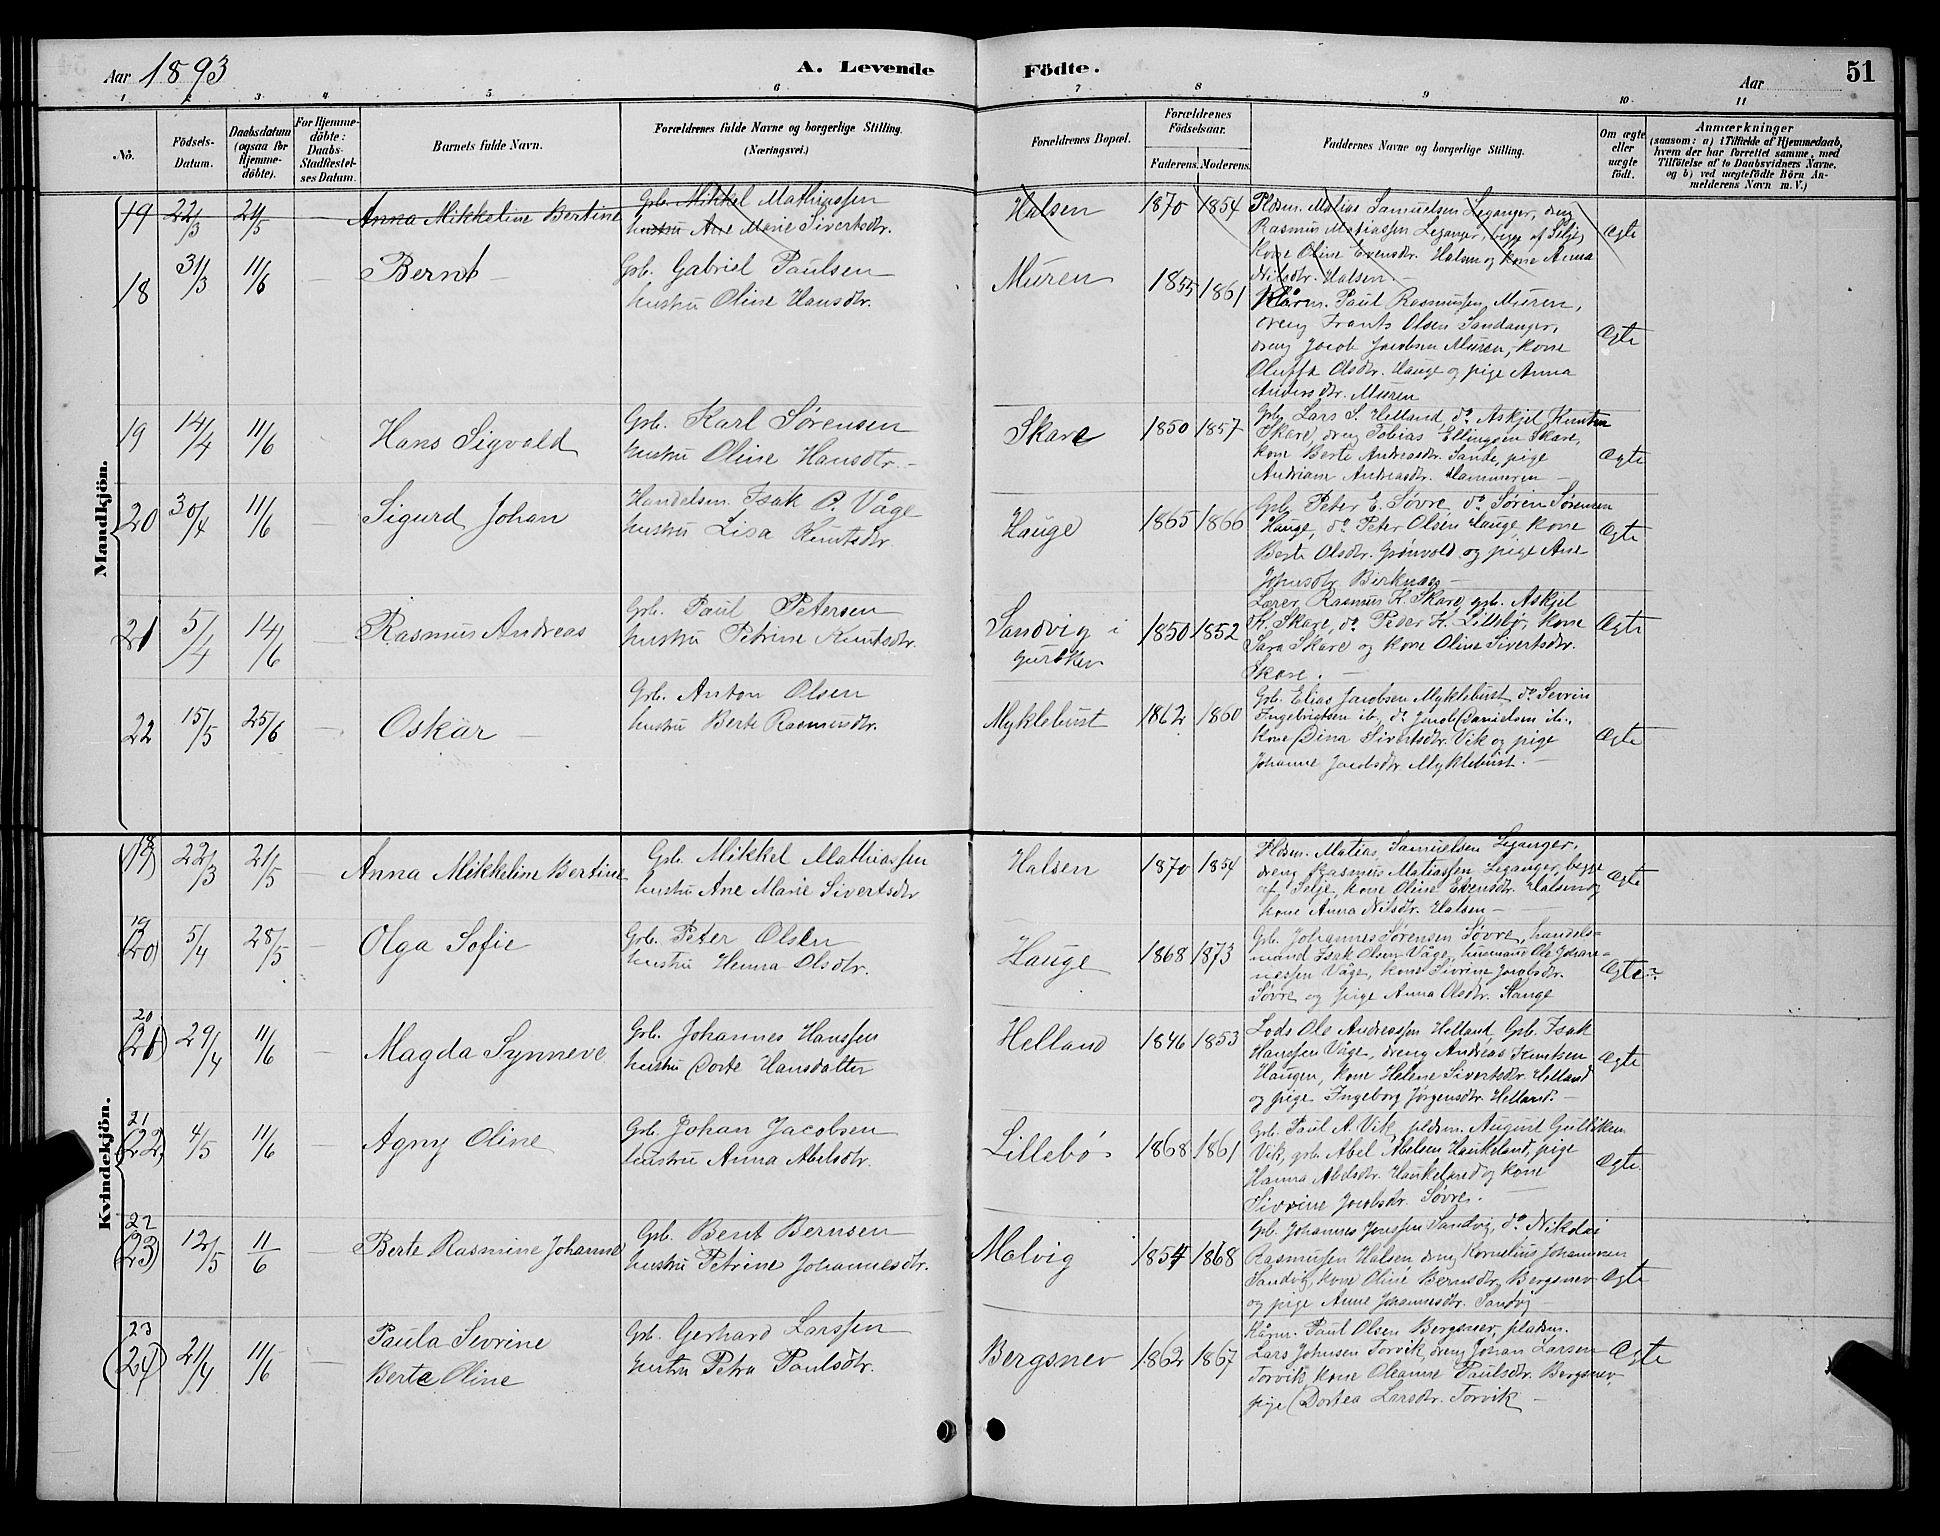 Aar 1893
A. Levende
Födte.
Aar
51
1 2 3 4 5 6 7 8 9 10 11
No.
Födsels-Datum.
Daabsdatum (ogsaa for Hjemme-döbte).
For Hjemme-döbte: Daabs-Stadfæstel-ses Datum.
Barnets fulde Navn.
Forældrenes fulde Navne og borgerlige Stilling. (Næringsvei.)
Forældrenes Bopæl.
Forældrenes Födselsaar.
Faderens. Moderens.
Faddernes Navne og borgerlige Stilling.
Om ægte eller uægte födt.
Anmærkninger
(saasom: a) i Tilfælde af Hjemmedaab,
hvem der har forrettet samme, med
Tilföielse af to Daabsvidners Navne,
og b) ved uægtefödte Börn An-
melderens Navn m. V.)
Mandkjön.
19 22/3 21/5 – Anna Mikkeline Bertine
Grb. Mikkel Mathiassen
hustru Ane Marie Sivertsdtr.
Halsen 1870 1854
Pldsm. Matias Samuelsen Leganger, dreng
Rasmus Matiassen Leganger, begge af Selje,
kone Oline Evensdtr. Halsen og kone Anna
Nilsdtr. Halsen. –
Ægte
18 31/3 11/6 – Bernt –
Grb. Gabriel Paulsen
hustru Oline Hansdtr.
Muren 1855 1861
Kårm. Paul Rasmussen Muren,
dreng Frants Olsen Sandanger,
dreng Jacob Jacobsen Muren, kone
Oluffa Olsdtr. Hauge og pige Anna
Andersdtr. Muren
Ægte
19 14/4 11/6 – Hans Sigvald
Grb. Karl Sørensen
hustru Oline Hansdtr. –
Skare 1850 1857
Grb. Lars S. Helland, do Askjel Knutsen
Skare, dreng Tobias Ellingsen Skare,
kone Berte Andreasdtr. Sande, pige
Andriane Andreasdtr. Hammeren –
Ægte
20 30/4 11/6 – Sigurd Johan
Handelsm. Isak O. Våge
hustru Lisa Knutsdtr.
Hauge 1865 1866
Grb. Peter E. Søvre, do Søren Sørensen
Hauge, do Peter Olsen Hauge, kone
Berte Olsdtr. Grønvold og pige Ane
Johnsdtr. Birknæs –
Ægte
21 5/4 14/6 Rasmus Andreas
Grb. Paul Petersen
hustru Petrine Knutsdtr.
Sandvig i
Gursken 1850 1852
Lærer Rasmus K. Skare, grb. Askjel
K. Skare, do Peder H. Lillebø, kone
Sara Skare og kone Oline Sivertsdtr.
Skare. –
Ægte
22 15/5 25/6 – Oskar –
Grb. Anton Olsen
hustru Berte Rasmusdtr.
Myklebust 1862 1860
Grb. Elias Jacobsen Myklebust, do Sevrin
Ingebrigtsen ib., do Jacob Danielsen ib.,
kone Dina Sivertsdtr. Vik og pige
Johanne Jacobsdtr. Myklebust. –
Ægte
Kvindekjön.
18
(19) 22/3 21/5 Anna Mikkeline Bertine
Grb. Mikkel Mathiassen
hustru Ane Marie Sivertsdtr
Halsen 1870 1854
Pldsm. Matias Samuelsen Leganger,
dreng Rasmus Matiassen Leganger, begge
af Selje, kone Oline Evensdtr. Halsen og
kone Anna Nilsdtr. Halsen –
Ægte
19
(20) 5/4 28/5 – Olga Sofie
Grb. Peter Olsen
hustru Henna Olsdtr.
Hauge 1868 1873
Grb. Johannes Sørensen Søvre, handels-
mand Isak Olsen Våge, husmand Ole Johan-
nessen Våge, kone Sivrine Jacobsdtr.
Søvre og pige Anna Olsdtr. Hauge
Ægte
20
(21) 29/4 11/6 – Magda Synneve
Grb. Johannes Hanssen
hustru Dorte Hansdatter
Helland 1846 1853
Lods Ole Andreassen Helland, Grb. Isak
Hanssen Våge, dreng Andreas Knutsen
Haugen, kone Helene Sivertsdtr. Helland
og pige Ingeborg Jørgensdtr. Helland. –
Ægte
21
(22) 4/5 11/6 – Agny Oline
Grb. Johan Jacobsen
hustru Anna Abelsdtr.
Lillebø 1868 1861
Grb. Paul A. Vik, pldsm. August Gulliksen
Vik, grb. Abel Abelsen Haukeland, pige
Hanna Abelsdtr. Haukeland og kone
Sivrine Jacobsdtr. Søvre. –
Ægte
22
(23) 12/5 11/6 Berte Rasmine Johanne
Grb. Bent Bernsen
hustru Petrine Johannesdtr.
Molvig 1854 1868
Grb. Johannes Jonssen Sandvig, do Nikolai
Rasmussen Halsen, dreng Kornelius Johannesen
Sandvig, kone Oline Berntsdtr. Bergsnev
og pige Anne Johannesdtr. Sandvig –
Ægte
23
(24) 21/4 11/6 – Paula Sevrine
Berte Oline
Grb. Gerhard Larssen
hustru Petra Paulsdtr.
Bergsnev 1862 1867
Kårm. Paul Olsen Bergsnev, pladsm.
Lars Johnsen Torvik, dreng Johan Larsen
Torvik, kone Oleanne Paulsdtr. Bergsnev,
pige Dortea Larsdtr. Torvik –
Ægte